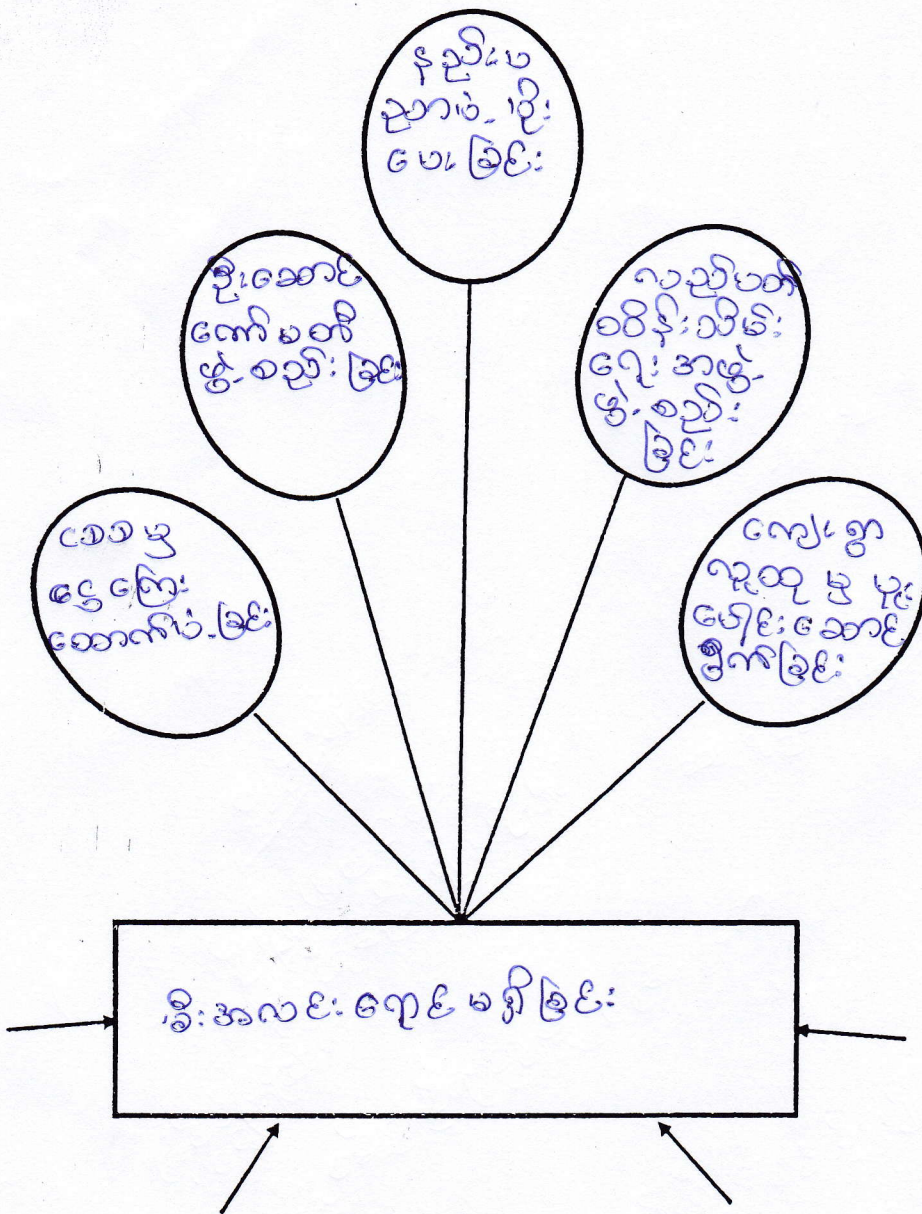 နည်းပ
ညာပံ့ပိုး
ပေးခြင်း
ဦးဆောင်
ကော်မတီ
ဖွဲ့စည်းခြင်း
လည်ပတ်
စဝိန်းသိမ်း
ရေးအဖွဲ့
ဖွဲ့စည်း
ခြင်း
ငွေကြေး
ထောက်ပံ့ခြင်း
ကျေးရွာ
လူထုမှပူး
ပေါင်းဆောင်
ရွက်ခြင်း
မီးအလင်းရောင်မရှိခြင်း